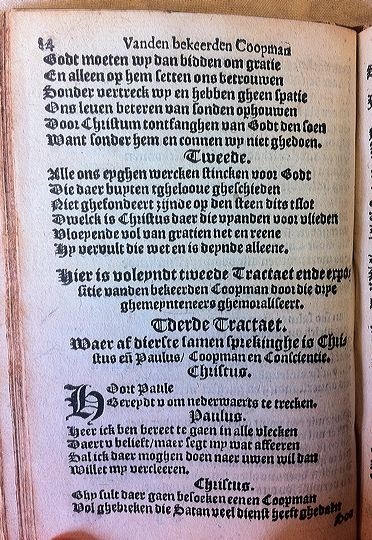 84 Vanden bekeerden Coopman
Godt moeten wy dan bidden om gratie
En alleen op hem setten ons betrouwen
Sonder vertreck wy en hebben gheen spatie
Ons leuen beteren van sonden ophouwen
Door Christum tontfanghen van Godt den soen
Want sonder hem en connen wy niet ghedoen.
Tweede.
Alle ons eyghen wercken stincken voor Godt
Die daer buyten tghelooue gheschieden
Niet ghefondeert zijnde op den steen dits tslot
Dwelck is Christus daer die vyanden voor vlieden
Vloeyende vol van gratien net en reene
Hy vervult die wet en is deynde alleene.
Hier is voleyndt tweede Tractaet ende expo-
sitie vanden bekeerden Coopman door die dipe
ghemeynteneers ghemoraliseert.
Tderde Tractaet.
Waer af dierste samen sprekinghe is Chris
stus eñ Paulus/ Coopman en Conscientie.
Christus.
HOort Paule
Bereydt v om nederwaerts te trecken.
Paulus.
Heer ick ben bereet te gaen in alle vlecken
Daert v belieft/ maer segt my wat affeeren
Sal ick daer moghen doen naer uwen wil dan
Willet my vercleeren.
Christus.
Ghy sult daer gaen besoeken eenen Coopman
Vol ghebreken die Satan veel dienst heeft ghedaen